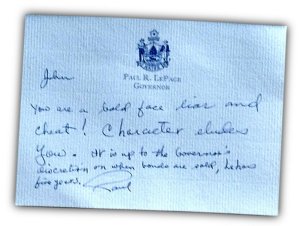 John
PAUL R. LEPAGE
GOVERNOR
You are a bald face liar and
cheat! Character eludes
you. It is up to the Governor's
discretion on when bonds are sold, he has
five years. Paul